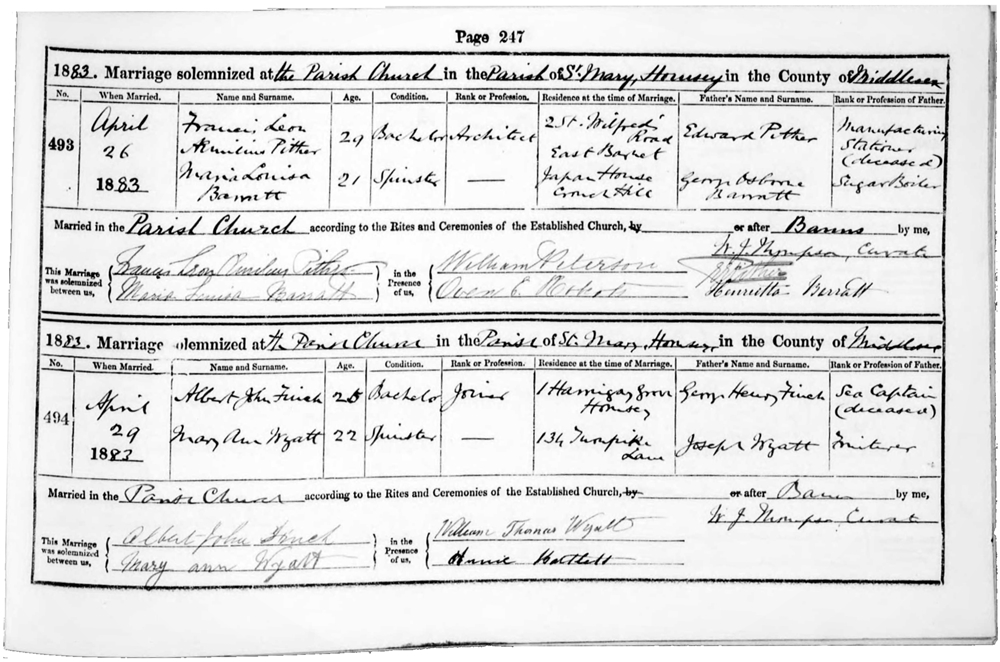 Page 247
1883. Marriage solemnized at the Parish Church in the Parish of St. Mary, Hornsey in the County of Middlesex
No. When Married. Name and Surname. Age. Condition. Rank or Profession. Residence at the time of Marriage. Father's Name and Surname. Rank or Profession of Father.
493 April 26 1883
Francis Leon Aemilius Pither 29 Bachelor Architect 2 St. Wilfred's Road East Barnet Edward Pither Manufacturing Stationer (deceased)
Maria Louisa Barratt 21 Spinster — Japan House Crouch Hill George Osborne Barratt Sugar Boiler
Married in the Parish Church according to the Rites and Ceremonies of the Established Church, by or after Banns by me,
W. J. Thompson, Curate
This Marriage was solemnized between us, Francis Leon Aemilius Pither in the Presence of us, William Peterson
Maria Louisa Barratt Owen E. Roberts Henrietta Barratt
1883. Marriage solemnized at the Parish Church in the Parish of St. Mary, Hornsey in the County of Middlesex
No. When Married. Name and Surname. Age. Condition. Rank or Profession. Residence at the time of Marriage. Father's Name and Surname. Rank or Profession of Father.
494 April 29 1883
Albert John Finch Bachelor Joiner 1 Grove Hornsey George Henry Finch Sea Captain (deceased)
Mary Ann Wyatt 22 Spinster — 134 Turnpike Lane Joseph Wyatt
Married in the Parish Church according to the Rites and Ceremonies of the Established Church, by or after Banns by me,
W. J. Thompson, Curate
This Marriage was solemnized between us, Albert John Finch in the Presence of us, William Thomas Wyatt
Mary Ann Wyatt Annie Bartlett